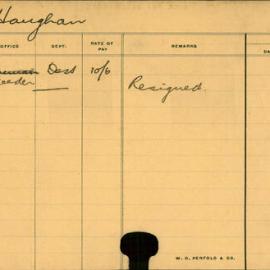 Haughan
OFFICE DEPT. RATE OF PAY REMARKS DA
Dess 10/6 Resigned.
eeder
W. C. PENFOLD & CO.